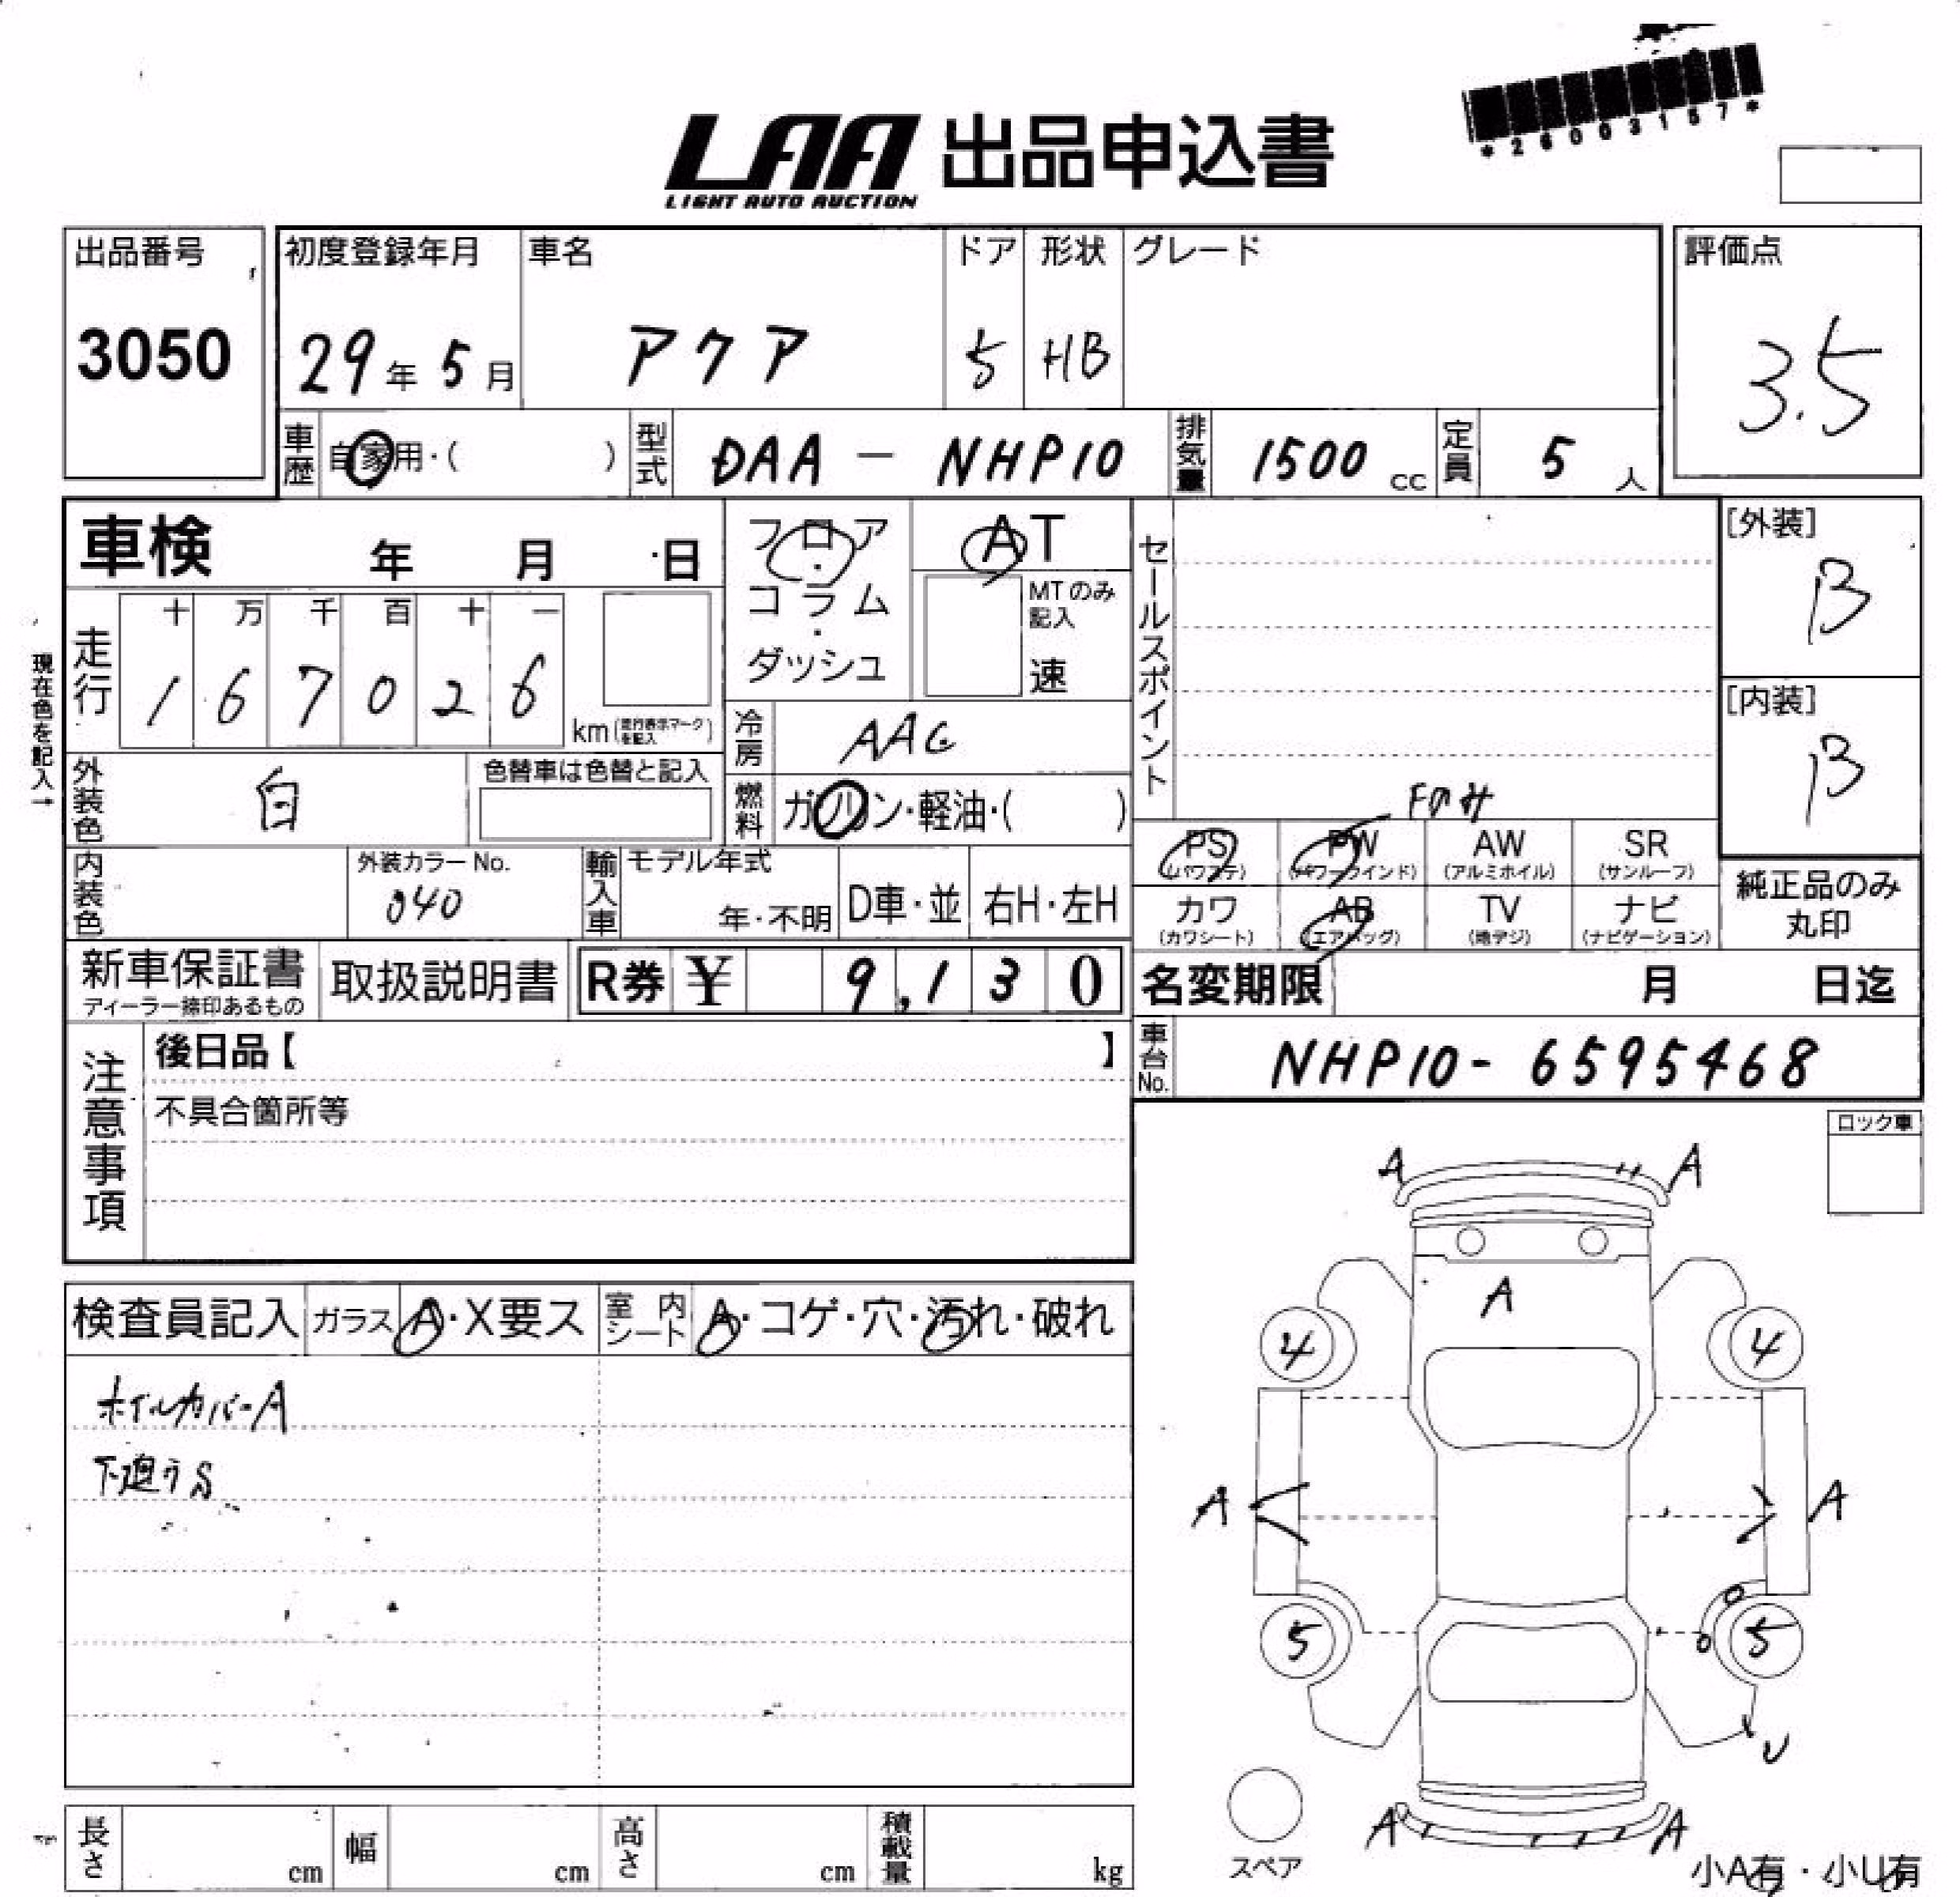 *26003157*
LAA 出品申込書
LIGHT AUTO AUCTION
出品番号 初度登録年月 車名 ドア 形状 グレード 評価点
3050 29年 5月 アクア 5 HB 3.5
車歴 自家用・( ) 型式 DAA - NHP10 排気量 1500 cc 定員 5 人
車検 年 月 日 フロア・コラム・ダッシュ AT セールスポイント [外装]
B
MTのみ記入
速
現在色を記入→
走行 十 万 千 百 十 一
1 6 7 0 2 6 km(走行表示マークを記入)
[内装]
B
冷房 AAC
外装色 白 色替車は色替と記入
燃料 ガソリン・軽油・( )
Fのみ
PS (パワステ) PW (パワーウインド) AW (アルミホイル) SR (サンルーフ)
内装色 外装カラーNo. 040 輸入車 モデル年式 年・不明 D車・並 右H・左H
カワ (カワシート) AB (エアバッグ) TV (地デジ) ナビ (ナビゲーション)
純正品のみ丸印
新車保証書 ディーラー捺印あるもの 取扱説明書 R券 ¥ 9,130 名変期限 月 日迄
車台No. NHP10-6595468
注意事項 後日品【 】
不具合箇所等
ロック車
A A
A
4 4
A A
5 5
U
A A
検査員記入 ガラス A・X要ス 室内シート A・コゲ・穴・汚れ・破れ
ホイルカバーA
下廻りS
スペア
小A有・小U有
長さ cm 幅 cm 高さ cm 積載量 kg